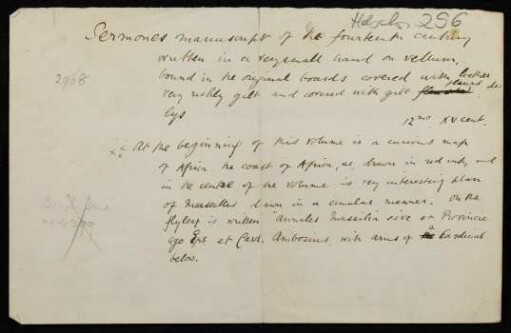 296
Sermones manuscript of the fourteenth century
written in a very small hand on vellum,
2968
bound in the original boards covered with leather
very richly gilt and covered with gilt fleurs de
lys
12mo. XV cent.
At the beginning of this volume is a curious map
of Africa, the coast of Africa, as drawn in red ink, and
in the centre of the volume is very interesting plan
of Marseilles drawn in a circular manner. On the
flyleaf is written Annales Massiliæ sive et Provinciæ
ego Eps et Card. Ambosius, with arms of a Cardinal
below.